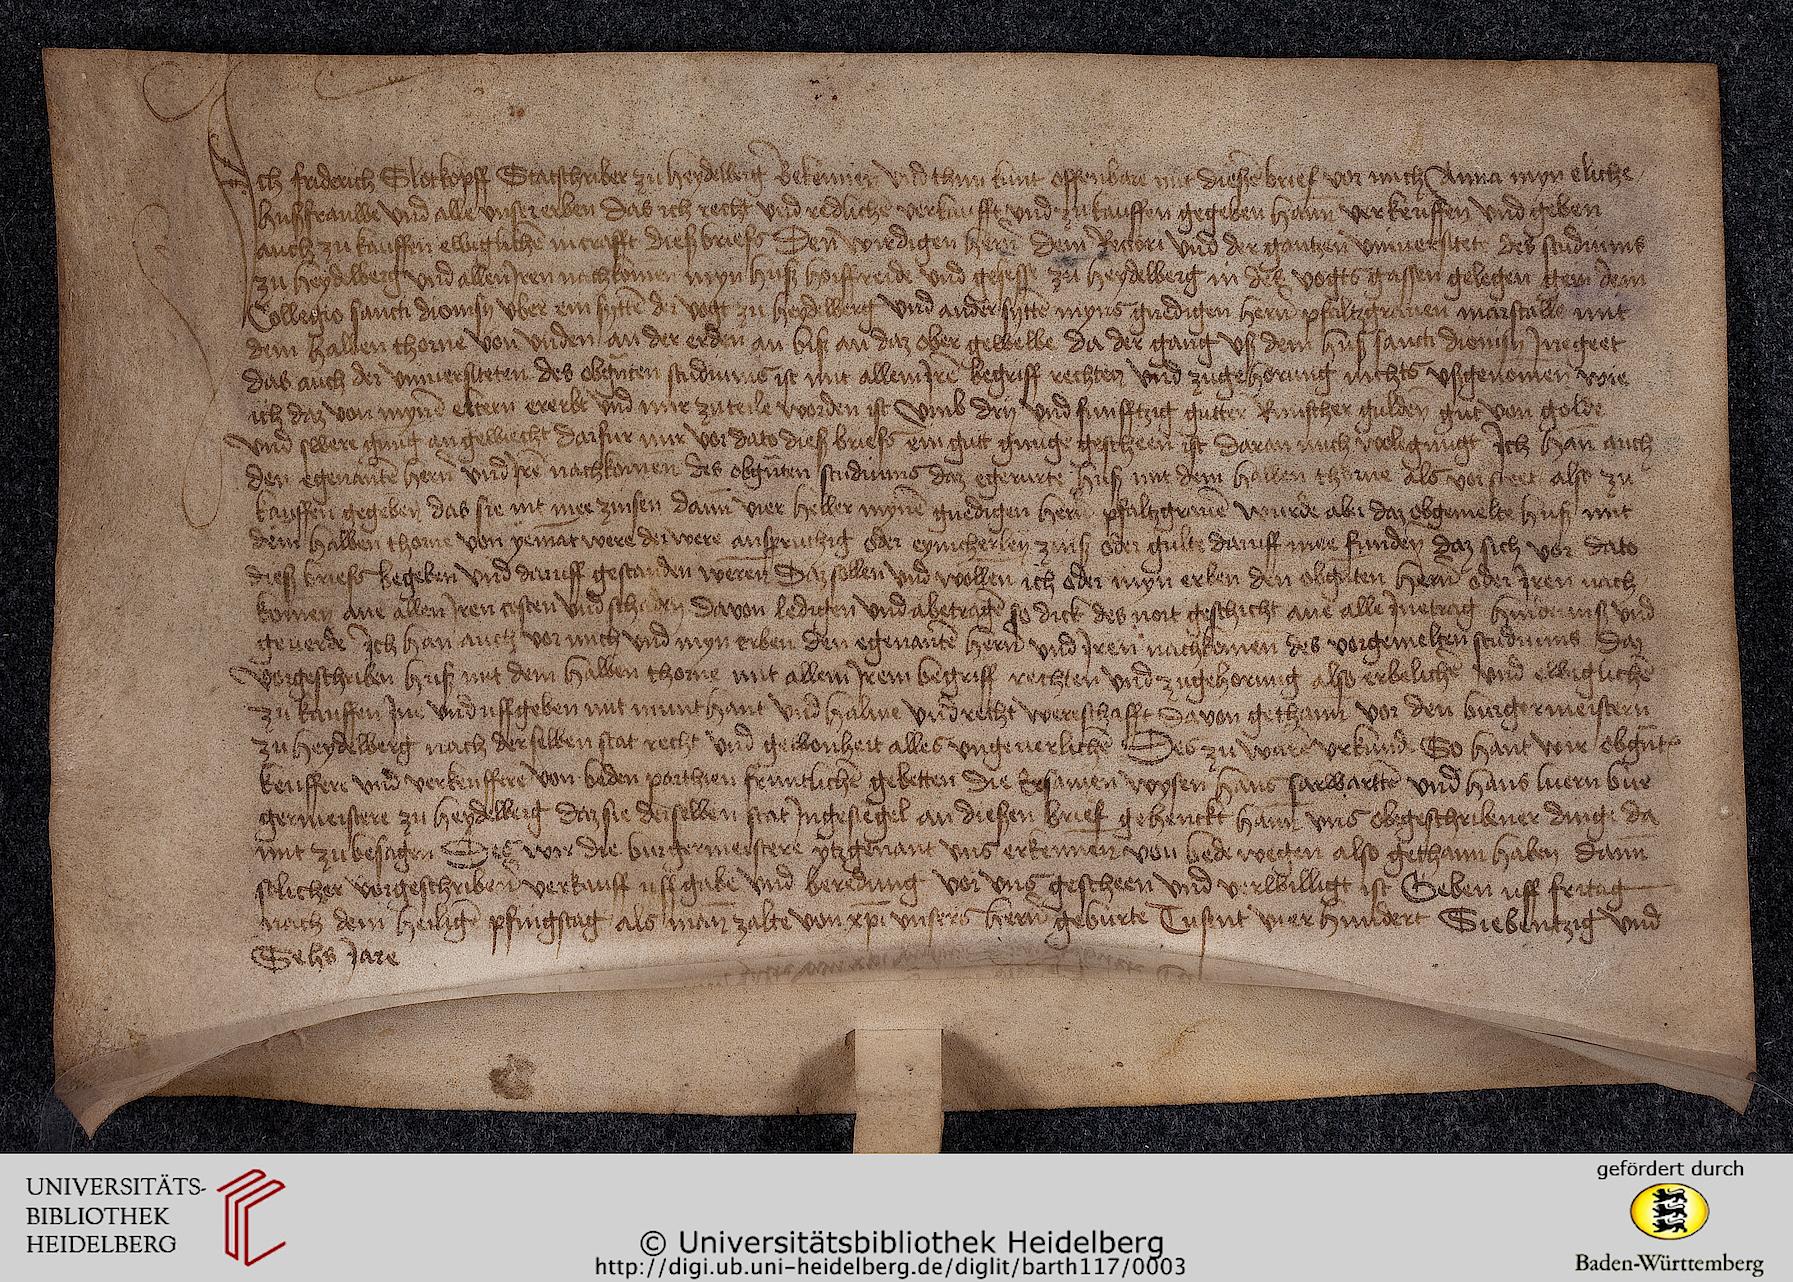 Ich friderich Glotkopff Statschriber zu Heydelberg Bekennen vnd thun kunt offenbare mit diesem brief vor mich Anna myn eliche
Hußfrauwe vnd alle vnser erben das ich recht vnd redlichen verkaufft vnd zu kauffen gegeben hann verkeuffen vnd geben
auch zu kauffen ewiglichen in crafft dieß briefs Den wirdigen hern dem Rectori vnd der gantzen vniuersitet des studiums
zu heydelberg vnd allen Iren nachkomen myn huß hoiffreide vnd gesesse zu heydelberg in des vogts gassen gelegen gein dem
Collegio sancti dionisij vber ein sytten der vogt zu heydelberg vnd ander sytte myns gnedigen hern pfaltzgrauen marstalle mit
dem halben thorne von vnden an der erden an biß an daz ober gewelbe da der gang vß dem huß sancti dionisij Inegeet
das auch der vniuersiteten des obgnten studiums ist mit allem Ire begriff rechten vnd zugehorung nichts vßgenomen wie
ich daz von mynen eltern ererbt vnd mir zuteile worden ist vmb dry vnd funfftzig gutter Rinscher gulden gut von golde
vnd swere gnug an gewiecht darfur mir vor dato dieß briefs ein gut gnuge gescheen ist daran mich wole gnugt Ich han auch
den egenanten hern vnd Iren nachkomen des obgnten studiums daz egerurte huß mit dem halben thorne als vor steet also zu
kauffen gegeben das sie nit mee zinsen dann vier heller mynem gnedigen hern pfaltzgreuen wurde aber daz obgemelte huß mit
dem halben thorne von yemant were der were anspruchig oder eynicherley zinß oder gulte daruff mee funden daz sich vor dato
dieß briefs begeben vnd daruff gestanden weren Daz sollen vnd wollen ich oder myn erben den obgnten hern oder Iren nach
komen ane allen Iren costen vnd schaden dauon ledigen vnd abetragen so dick des noit geschicht ane alle Inetrag hinderniß vnd
geuerde Ich han auch vor mich vnd myn erben den egenanten hern vnd Iren nachkomen des vorgemelten studiums daz
vorgeschriben huß mit dem halben thorne mit allem Irem begriff rechten vnd zugehorung also erbelichen vnd ewiglichen
zu kauffen Ine vnd uffgeben mit munt hant vnd halme vnd recht werschafft dauon gethann vor den burgermeistern
zu heydelberg nach derselben stat recht vnd gewonheit alles vngeuerlichen Des zu ware vrkunde So hant wir obgnt
keuffere vnd verkeuffere von beden parthien fruntlichen gebetten die Ersamen wysen hans vnd hans bur
germeistere zu heydelberg daz sie derselben stat Ingesiegel an diesen brief gehenckt hann vns obgeschribener dinge da
mit zubesagen Des wir die burgermeistere ytzgenant vns erkennen von bede wegen also gethann haben dann
solicher vorgeschriben verkauff uffgabe vnd beredung vor vns gescheen vnd verwilligt ist Geben uff fritag
nach dem heiligen pfingstag als man zalte von xpi vnsers hern geburte Tusent vier hundert Siebentzig vnd
Sehs Jare
UNIVERSITÄTS-
BIBLIOTHEK
HEIDELBERG
© Universitätsbibliothek Heidelberg
http://digi.ub.uni-heidelberg.de/diglit/barth117/0003
gefördert durch
Baden-Württemberg